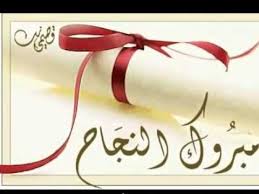 مبروك النجاح